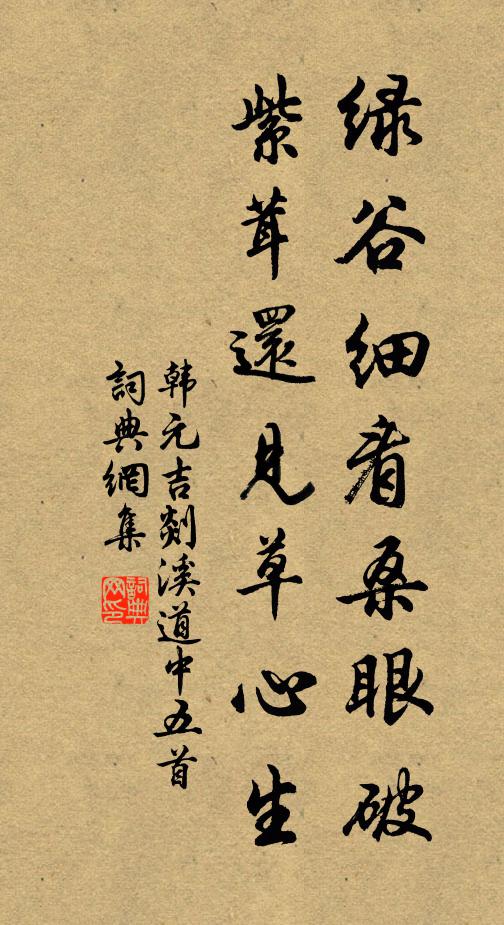 绿谷细看桑眼破
紫茸還見草心生
韩元吉剡溪道中五首
詞典網集
詞典网印